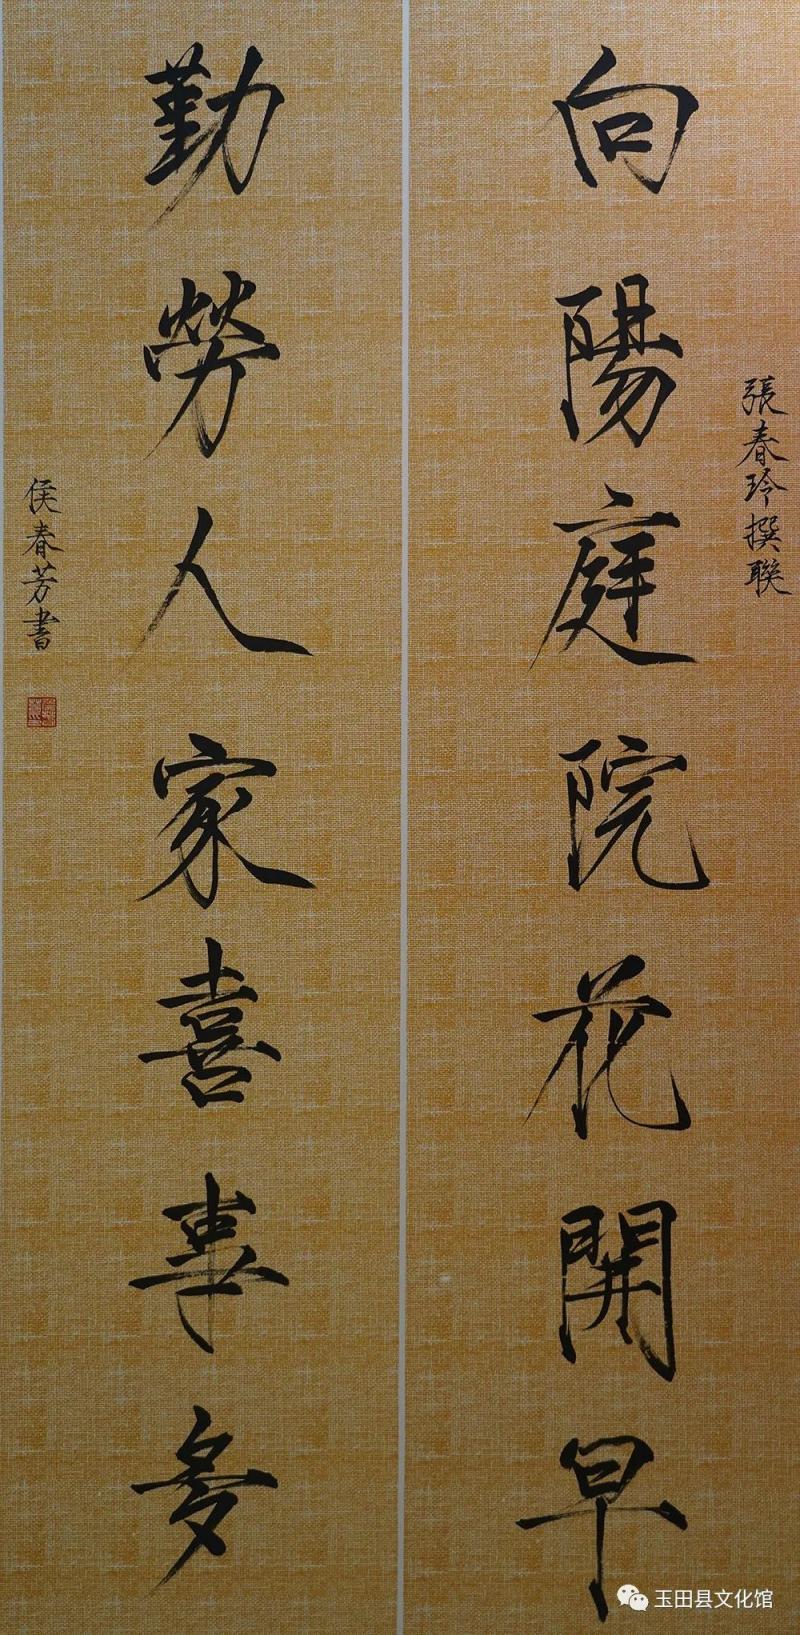 張春玲撰聯
向陽庭院花開早
勤勞人家喜事多
侯春芳書
玉田县文化馆